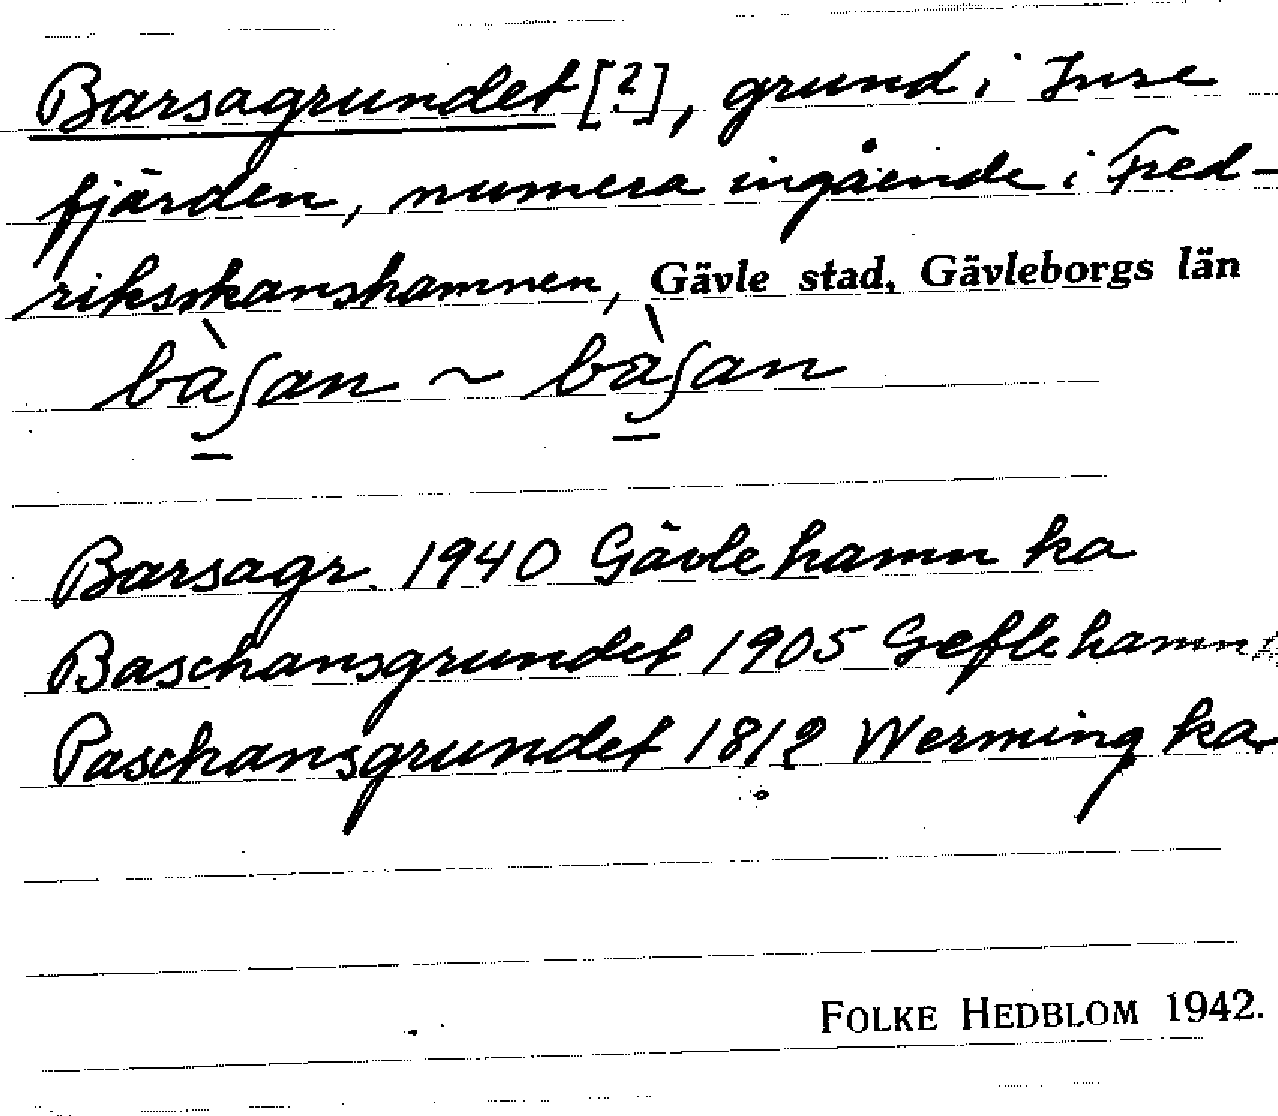 Barsagrundet [?], grund i Inre
fjärden, numera ingående i Fred-
rikskanshamnen, Gävle stad, Gävleborgs län
bàʃan ~ bàʃan
Barsagr. 1940 Gävle hamn ka
Baschansgrundet 1905 Gefle hamn
Paschansgrundet 1812 Werming ka.
FOLKE HEDBLOM 1942.